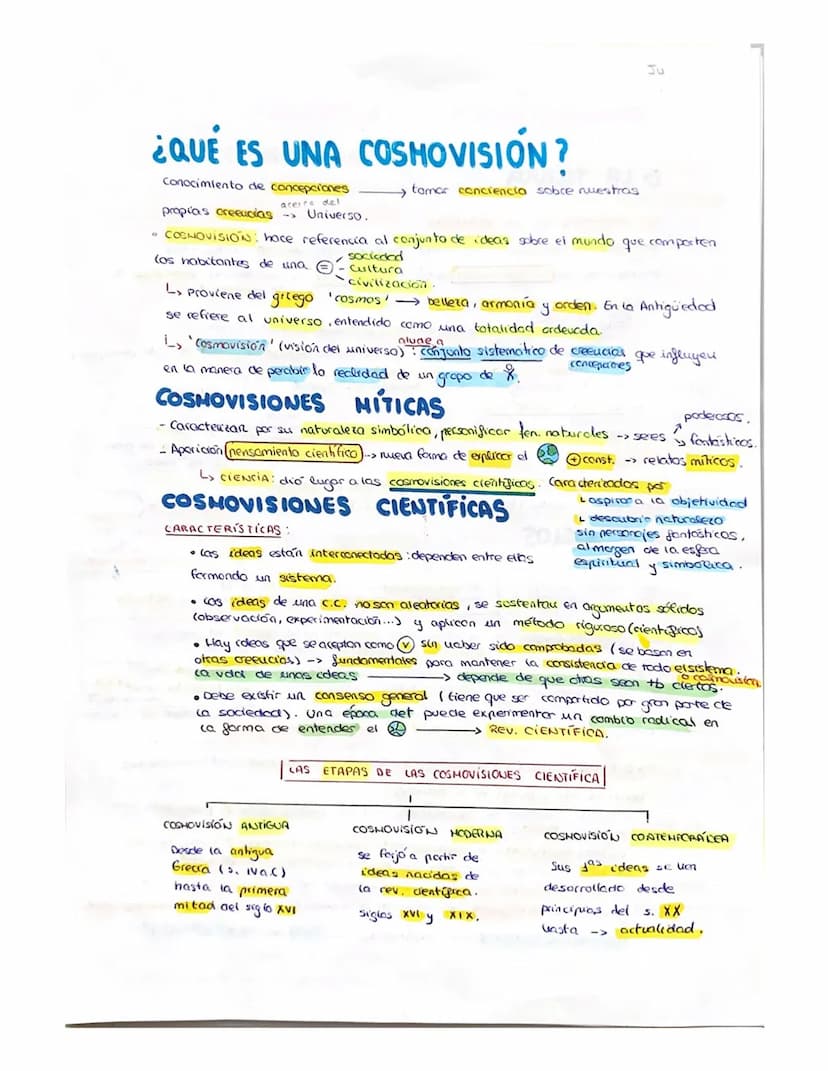 JU
¿QUÉ ES UNA COSMOVISIÓN?
Conocimiento de concepciones → tomar conciencia sobre nuestras
acerca del
propias creencias -> Universo.
• COSMOVISIÓN: hace referencia al conjunto de ideas sobre el mundo que comparten
los habitantes de una = - sociedad
- cultura
- civilización.
↳ Proviene del griego 'cosmos' → belleza, armonía y orden. En la Antigüedad
se refiere al universo, entendido como una totalidad ordenada.
alude a
↳ 'cosmovisión' (visión del universo): conjunto sistemático de creencias que influyen
concepciones
en la manera de percibir la realidad de un grupo de
COSMOVISIONES MÍTICAS
- Caracterizan por su naturaleza simbólica, personificar fen. naturales -> seres ↗ poderosos.
↘ fantásticos.
- Aparición pensamiento científico -> nueva forma de explicar el + const. -> relatos míticos.
↳ CIENCIA: dio lugar a las cosmovisiones científicas. Caracterizadas por
↳ aspirar a la objetividad
↳ descubrir naturaleza
sin personajes fantásticos,
al margen de la esfera
espiritual y simbólica.
COSMOVISIONES CIENTÍFICAS
CARACTERÍSTICAS:
• Las ideas están interconectadas: dependen entre ellas
formando un sistema.
• Las ideas de una C.C. no son aleatorias, se sustentan en argumentos sólidos
(observación, experimentación...) y aplican un método riguroso (científico)
• Hay ideas que se aceptan como V sin haber sido comprobadas (se basan en
otras creencias) -> fundamentales para mantener la consistencia de todo el sistema.
o cosmovisión
La vdad de unas ideas → depende de que otras sean tb ciertas.
• Debe existir un consenso general (tiene que ser compartido por gran parte de
la sociedad). Una época det puede experimentar un cambio radical en
la forma de entender el → REV. CIENTÍFICA.
LAS ETAPAS DE LAS COSMOVISIONES CIENTÍFICA
COSMOVISIÓN ANTIGUA
Desde la antigua
Grecia (s. IV a.C)
hasta la primera
mitad del siglo XVI
COSMOVISIÓN MODERNA
se forjó a partir de
ideas nacidas de
la rev. científica.
Siglos XVI y XIX.
COSMOVISIÓN CONTEMPORÁNEA
Sus 1as ideas se han
desarrollado desde
principios del s. XX
hasta -> actualidad.